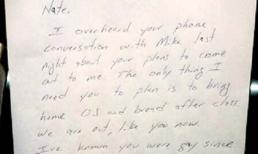 Nate,
I overheard your phone
conversation with Mike last
night about your plans to come
out to me. The only thing I
need you to plan is to bring
home OJ and bread after class.
We are out, like you now.
I've known you were gay since